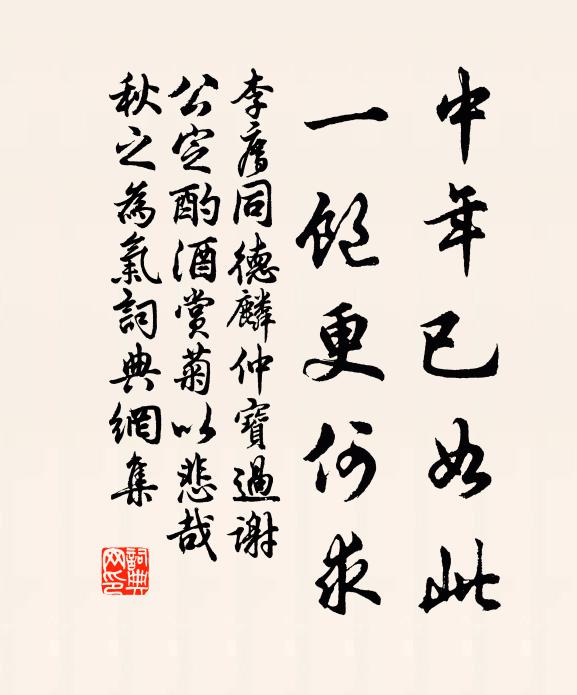 中年已如此
一飽更何求
李廌同德麟仲寶過謝
公定酌酒賞菊以悲哉
秋之為氣詞典網集
詞典網印